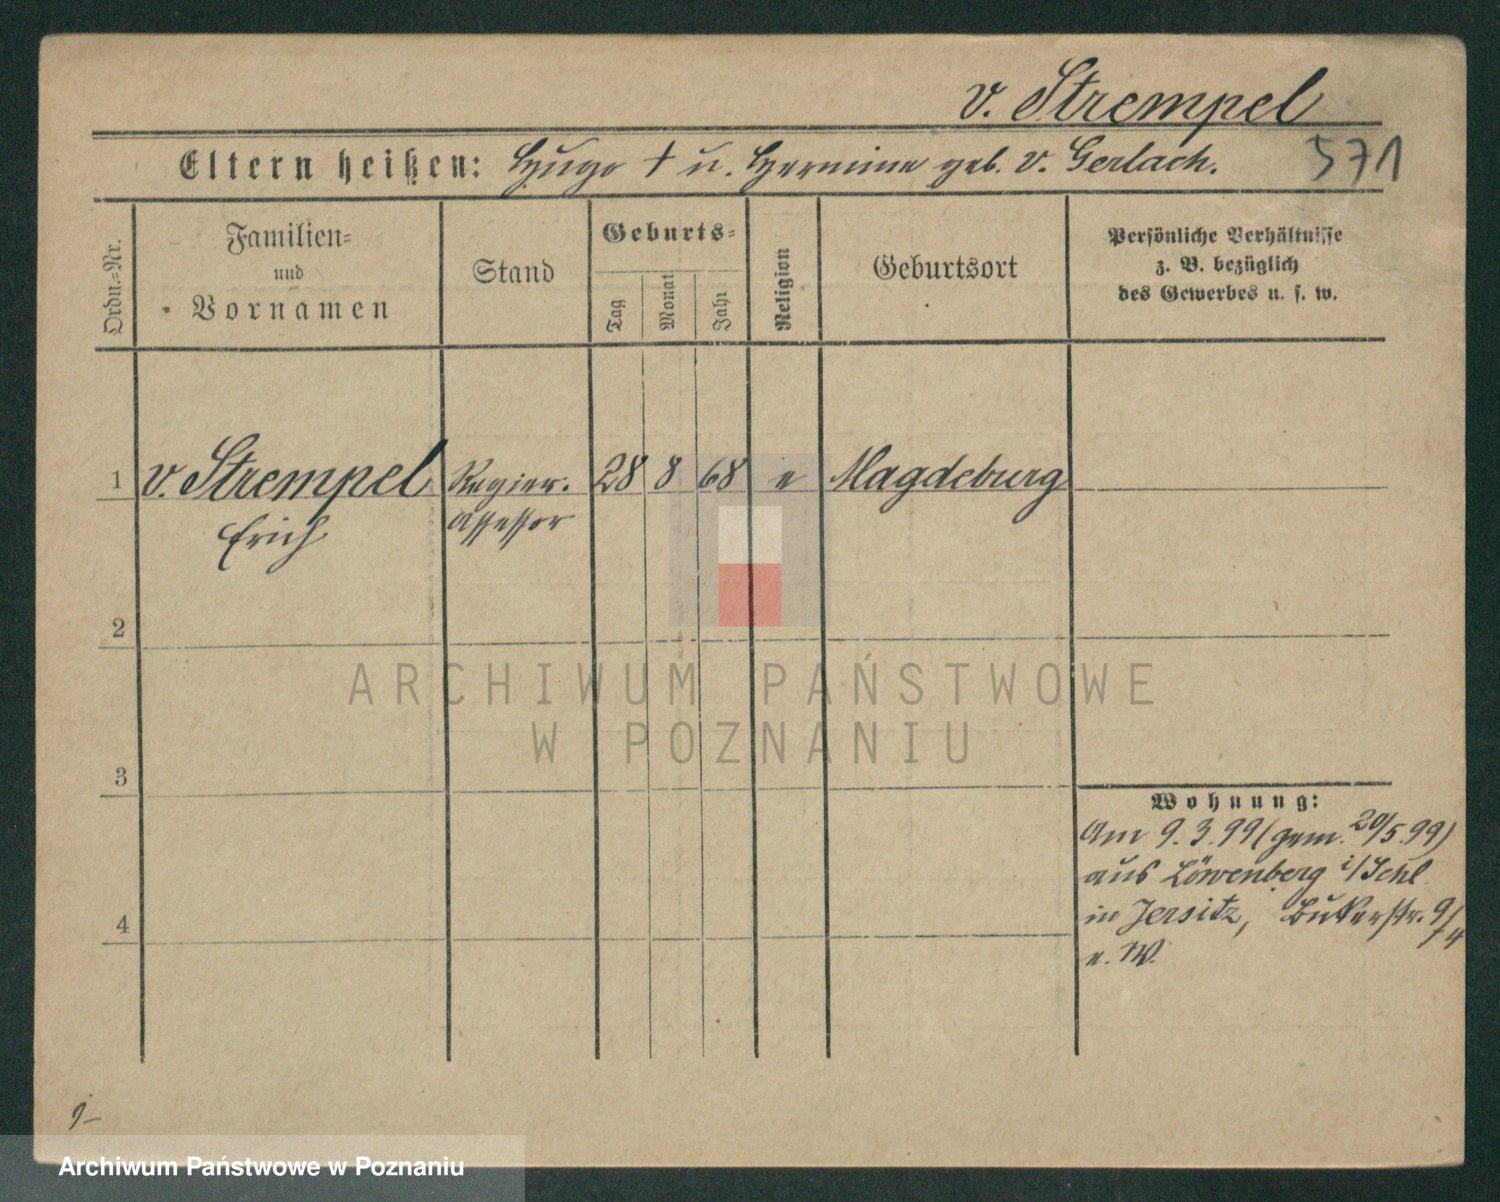 v. Strempel
Eltern heißen: Hugo † u. Hermine geb. v. Gerlach.
571
Ordn.=Nr.
Familien=
und
Vornamen
Stand
Geburts=
Tag
Monat
Jahr
Religion
Geburtsort
Persönliche Verhältnisse
z. B. bezüglich
des Gewerbes u. s. w.
1 v. Strempel Regier. 28 8 68 e Magdeburg
Erich assessor
2
3
4
Wohnung:
Am 9.3.99 (gem. 20/5.99)
aus Löwenberg i/Schl.
in Jersitz, Bukerstr. 9/
e. W.
ARCHIWUM PAŃSTWOWE
W POZNANIU
Archiwum Państwowe w Poznaniu